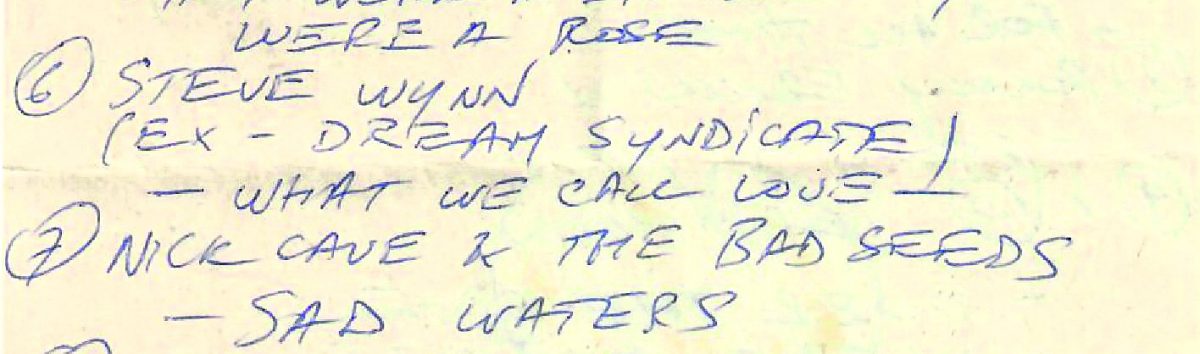 WERE A ROSE
⑥ STEVE WYNN
(EX - DREAM SYNDICATE)
- WHAT WE CALL LOVE -
⑦ NICK CAVE & THE BAD SEEDS
- SAD WATERS